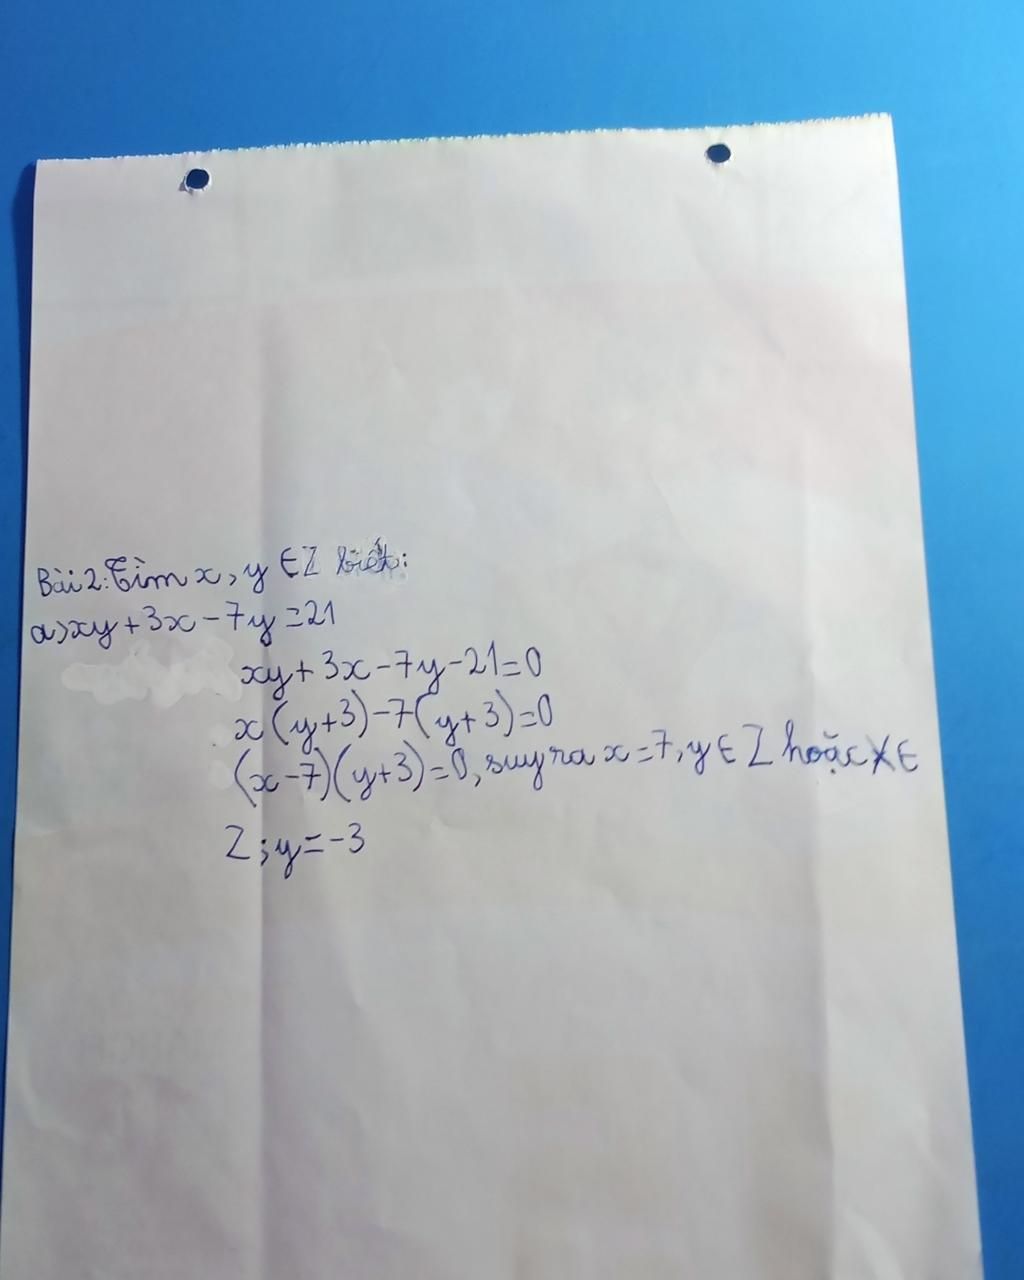 Bài 2: Tìm x, y ∈ Z biết:
a) xy + 3x - 7y = 21
xy + 3x - 7y - 21 = 0
x(y+3) - 7(y+3) = 0
(x-7)(y+3) = 0, suy ra x = 7, y ∈ Z hoặc X ∈
Z; y = -3